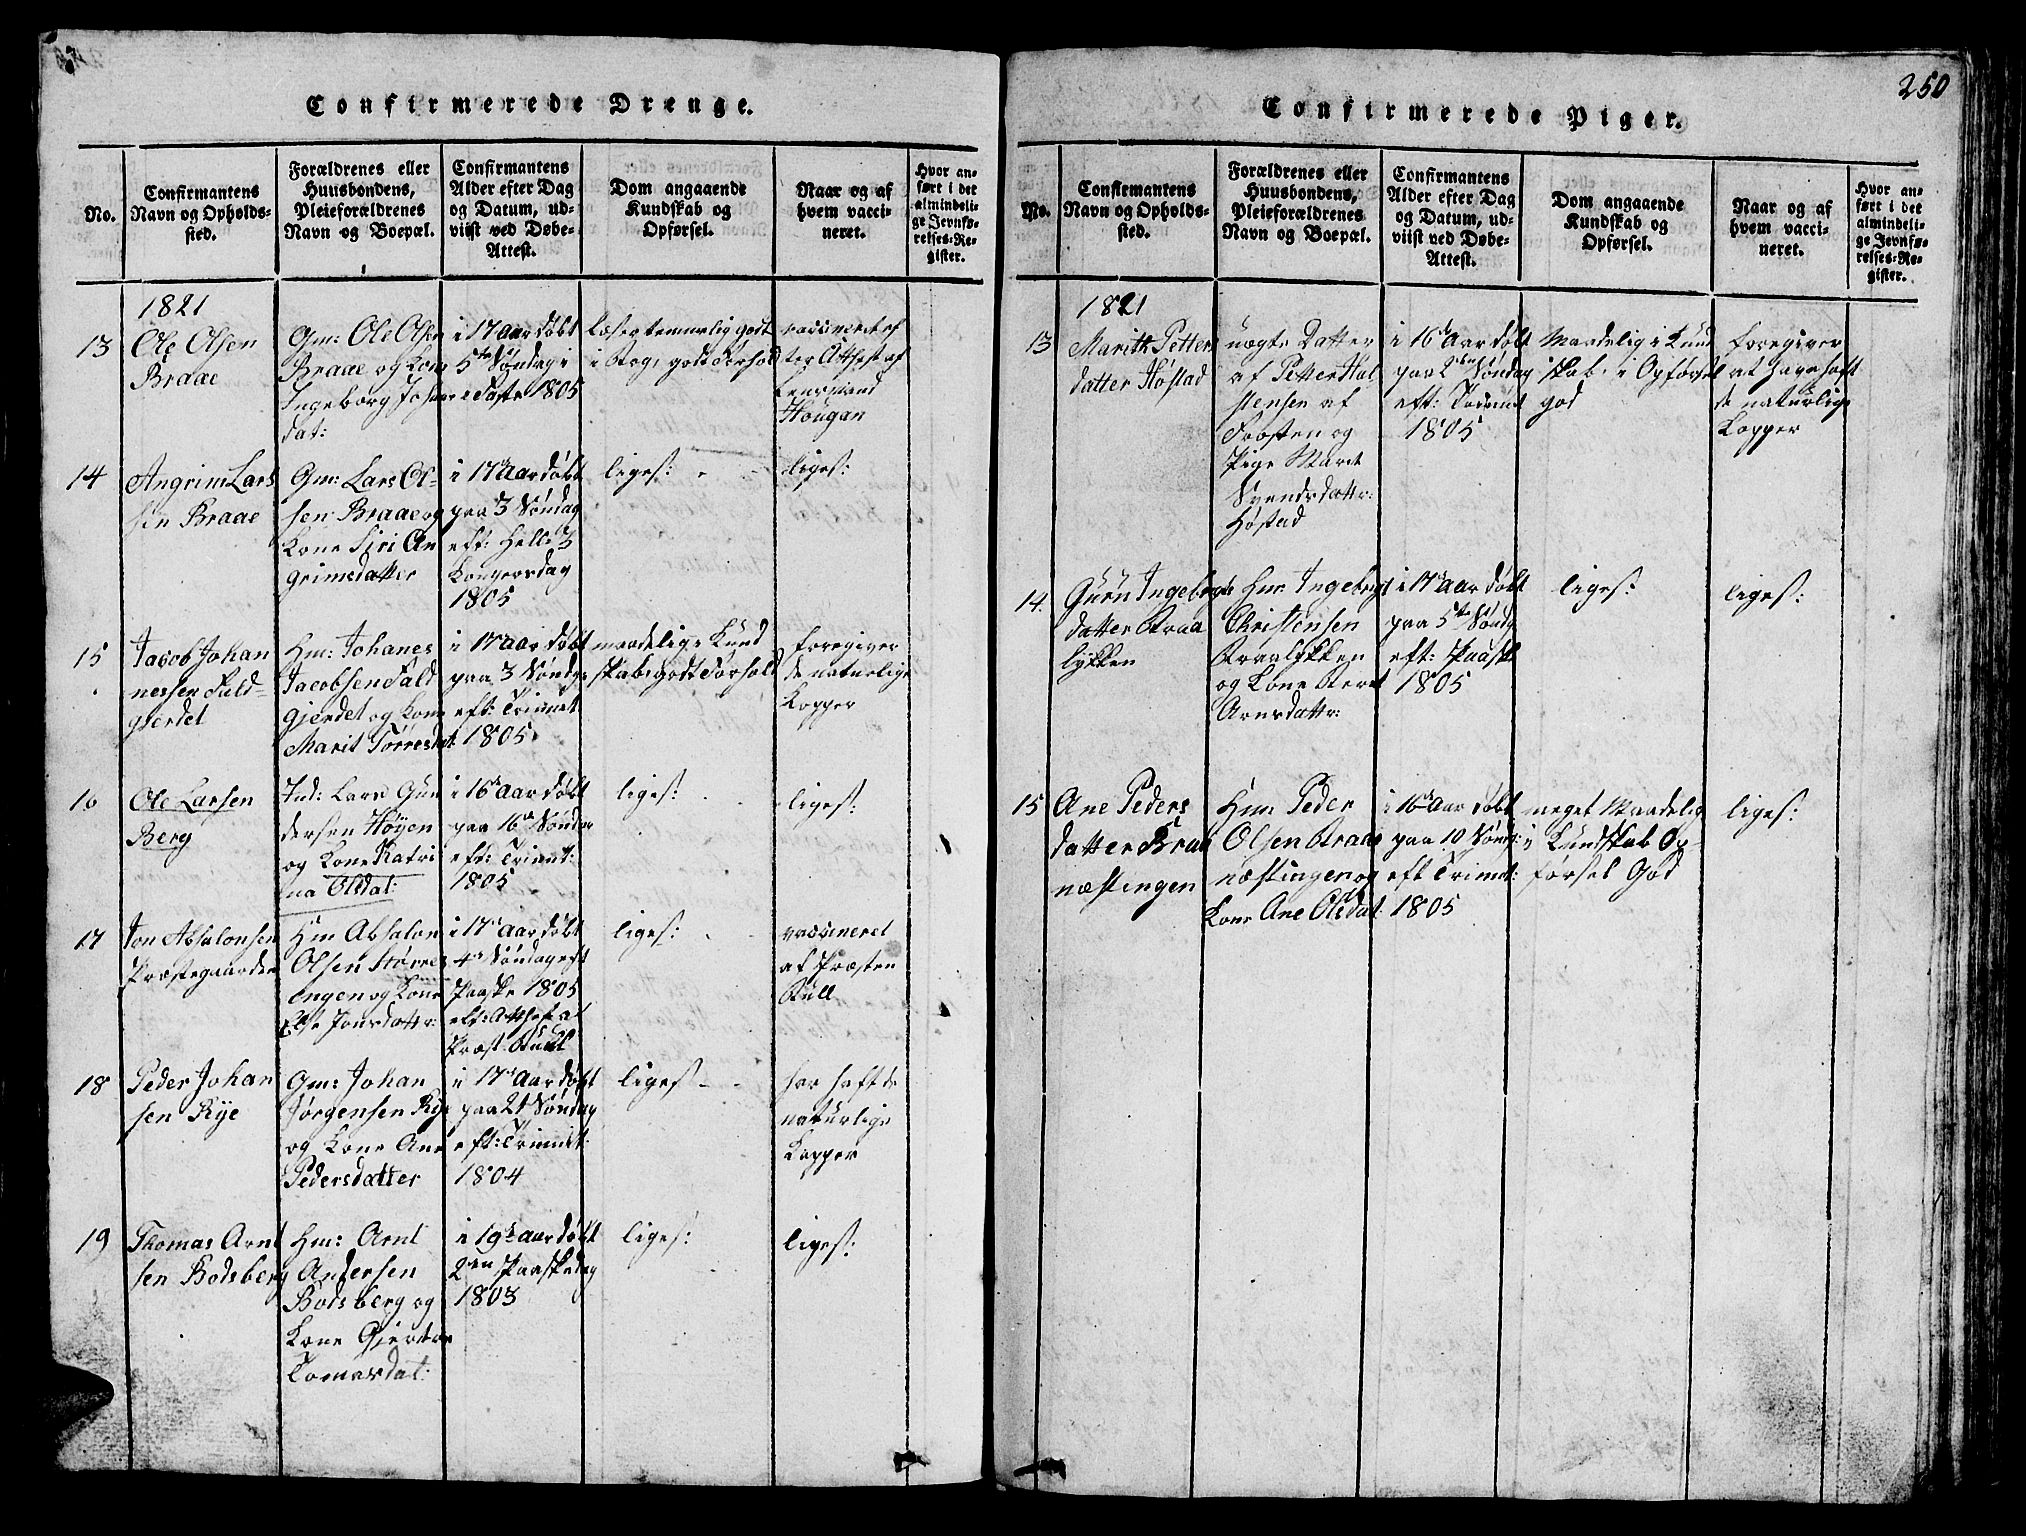 250
Confirmerede Drenge.
No.
Confirmantens
Navn og Opholds-
sted.
Forældrenes eller
Huusbondens,
Pleieforældrenes
Navn og Boepæl.
Confirmantens
Alder efter Dag
og Datum, ud-
viist ved Døbe-
Attest.
Dom angaaende
Kundskab og
Opførsel.
Naar og af
hvem vacci-
neret.
Hvor an-
ført i det
almindeli-
ge Jevnfø-
relses-Re-
gister.
1821
13
Ole Olsen
Braae
Gm: Ole Olsen
Braae og Kone
Ingeborg Johans
dat:
i 17 Aar døbt
5te Søndag i
Faste 1805
Læser temmelig godt
i Bog, godt Forhold
vacineret ef
ter Attest af
Lensmand
Hougan
14
Angrim Lars
sen Braae
Gm: Lars Ol-
sen Braae og
Kone Siri An
grimsdatter
i 17 Aar døbt
paa 3 Søndag
eft: Hell: 3
Kongersdag
1805
liges:
liges:
15
Jacob Johan
nessen Fald-
gierdet
Hm: Johanes
Jacobsen Fald
gjerdet og Kone
Marit Torresdat
i 17 Aar døbt
paa 3 Søndag
eft: Trinnit
1805
maadelige Kund
skab godt Forhold
foregiver
de naturlige
Kopper
16
Ole Larsen
Berg
Ind: Lars Gun
dersen Höyen
og Kone Katri
na Olsdat:
i 16 Aar døbt
paa 16 Søndag
eft: Trinnit:
1805
liges:
liges:
17
Jon Absalonsen
Præstegaarden
Hm Absalon
Olsen Størres
engen og Kone
Else Jonsdattr:
i 17 Aar døbt
4de Søndag eft
Paaske 1805
eft: Attest af
Præst Bull
liges:
vacineret
af Præsten
Bull
18
Peder Johan
sen Rye
Gm: Johan
Jørgensen Rye
og Kone Ane
Pedersdatter
i 17 Aar døbt
paa 21 Søndag
eft: Trinnit:
1804
liges
har haft de
naturlige
Kopper
19
Thomas Arnt
sen Bodsberg
Hm: Arnt
Andersen
Bodsberg og
Kone Gjertru
Tomasdat:
i 19 Aar døbt
2den Paaskedag
1803
liges:
liges:
Confirmerede Piger.
No.
Confirmantens
Navn og Opholds-
sted.
Forældrenes eller
Huusbondens,
Pleieforældrenes
Navn og Boepæl.
Confirmantens
Alder efter Dag
og Datum, ud-
viist ved Døbe-
Attest.
Dom angaaende
Kundskab og
Opførsel.
Naar og af
hvem vacci-
neret.
Hvor an-
ført i det
almindeli-
ge Jevnfø-
relses-Re-
gister.
1821
13
Marith Petters
datter Høstad
uægte Datter
af Petter Hal
stensen af
Frosten og
Pige Maret
Svendsdattr:
Høstad
i 16 Aar døbt
paa 2den Søndag
eft:
1805
Maadelig i Kund
skab, i Opførsel
god
foregiver
at have haft
de naturlige
Kopper
14.
Gurn Ingebrigts
datter Braa
lykken
Hm: Ingebrigt
Christensen
Braalykken
og Kone Beret
Arnsdattr:
i 17 Aar døbt
paa 5te Søndg
eft: Paaske
1805
liges:
liges:
15
Ane Peders
datter Braa
næstingen
Hm: Peder
Olsen Braae
næstingen og
Kone Ane Olsdat:
i 16 Aar døbt
paa 10 Søndg:
eft Trinnit:
1805
meget Maadelig
i Kundskab Op-
førsel God
liges: